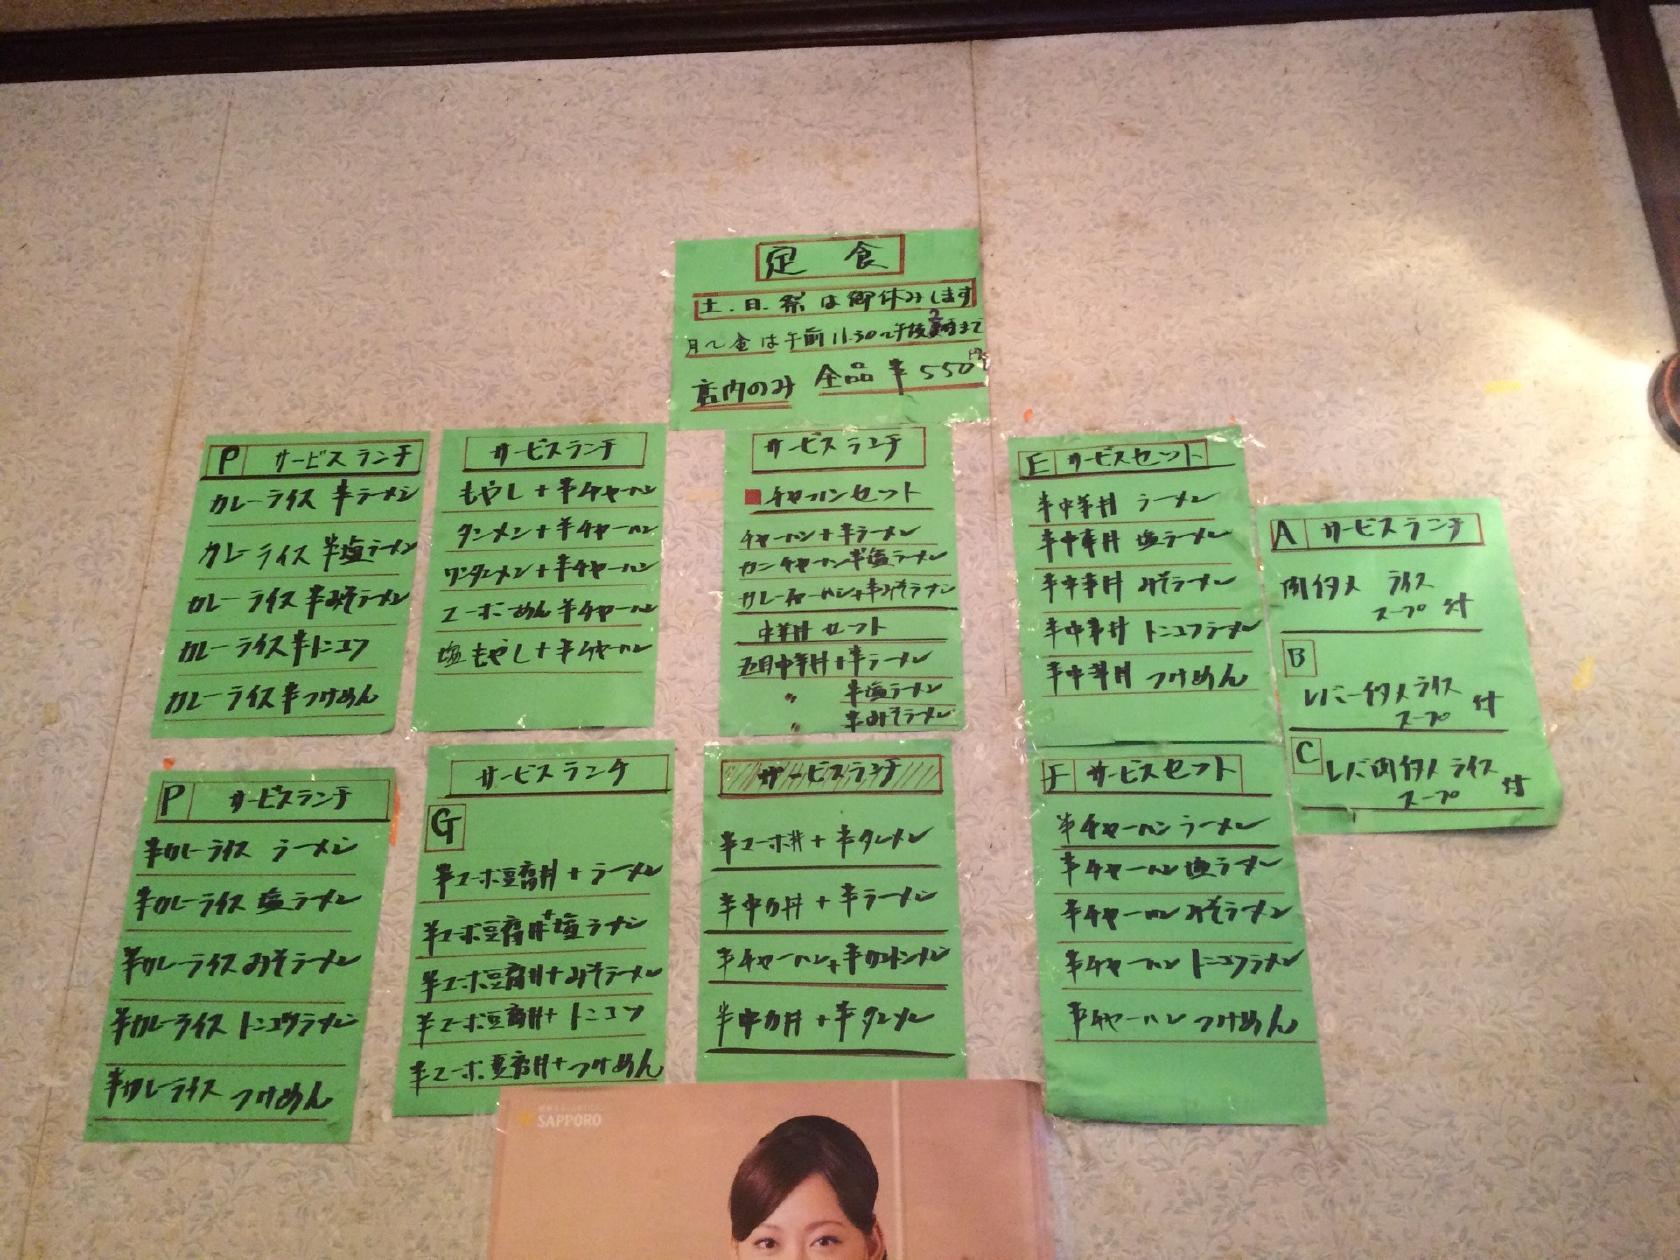 定 食
土.日.祭は御休みします
月〜金は午前11.30〜午後2時まで
店内のみ 全品 半550円
P サービスランチ
カレーライス 半ラーメン
カレーライス 半塩ラーメン
カレーライス 半みそラーメン
カレーライス半トンコツ
カレーライス半つけめん
サービスランチ
もやし+半チャーハン
タンメン+半チャーハン
ワンタンメン+半チャーハン
マーボーめん半チャーハン
塩もやし+半チャーハン
サービスランチ
チャーハンセット
チャーハン+半ラーメン
半塩ラーメン
カレーチャーハン+半みそラーメン
中華丼セット
中華丼+半ラーメン
〃 半塩ラーメン
〃 半みそラーメン
E サービスセット
半中華丼 ラーメン
半中華丼 塩ラーメン
半中華丼 みそラーメン
半中華丼 トンコツラーメン
半中華丼 つけめん
A サービスランチ
肉イタメ ライス
スープ 付
B
レバーイタメライス
スープ 付
C レバ肉イタメライス
スープ 付
P サービスランチ
半カレーライス ラーメン
半カレーライス 塩ラーメン
半カレーライス みそラーメン
半カレーライス トンコツラーメン
半カレーライス つけめん
サービスランチ
G
半マーボ豆腐丼+ラーメン
半マーボ豆腐丼+塩ラーメン
半マーボ豆腐丼+みそラーメン
半マーボ豆腐丼+トンコツ
半マーボ豆腐丼+つけめん
サービスランチ
半マーボ丼+半タンメン
半中カ丼+半ラーメン
半チャーハン+半ワンタンメン
半中カ丼+半タンメン
F サービスセット
半チャーハン ラーメン
半チャーハン 塩ラーメン
半チャーハン みそラーメン
半チャーハン トンコツラーメン
半チャーハン つけめん
SAPPORO